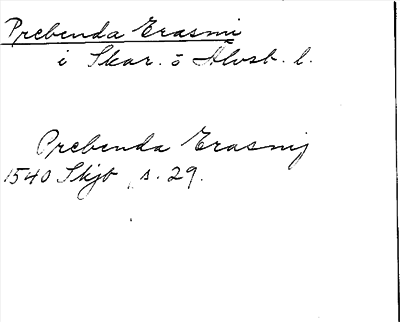 Prebenda Erasmi
i Skar. o Älvsb. l.
Prebenda Erasmij
1540 Skjb, s. 29.